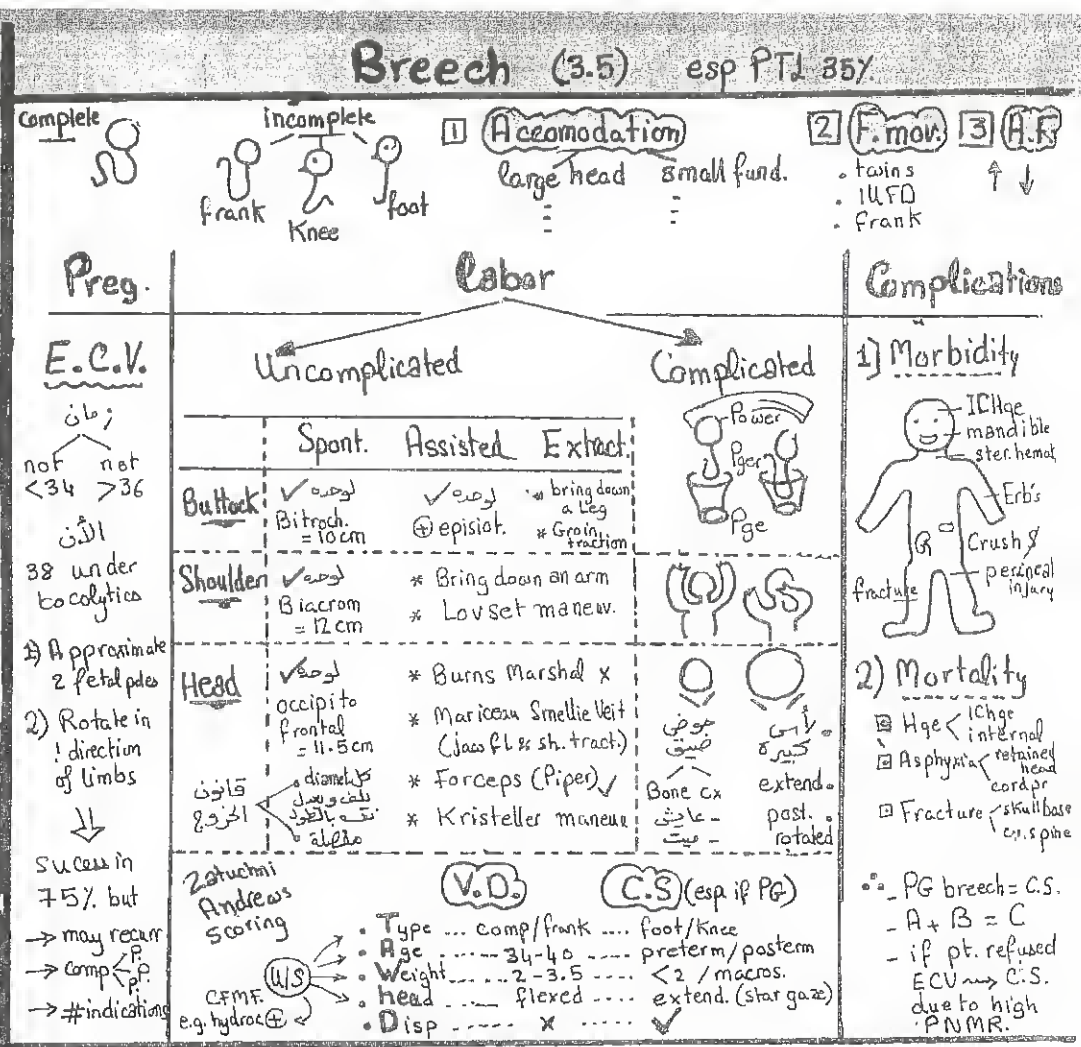 Breech (3.5) esp PTL 35%
complete
incomplete
frank
Knee
foot
1 Accomodation
large head small fund.
2 F.mov.
. twins
. IUFD
. frank
3 A.F
↑ ↓
Preg.
E.C.V.
زمان
not <34
not >36
الأن
38 under
tocolytics
1) Approximate
2 fetal poles
2) Rotate in
! direction
of limbs
⇓
sucess in
75% but
→ may recurr
→ comp P. P. P.
→ #indications
Labor
Uncomplicated
Spont. Assisted Extract.
Buttock
✓ لوحده
Bitroch.
= 10cm
✓ لوحده
⊕ episiot.
* bring down
a leg
* Groin
traction
Shoulder
✓ لوحده
Biacrom
= 12cm
* Bring down an arm
* Lovset maneuv.
Head
✓ لوحده
occipito
frontal
= 11.5cm
* Burns Marshal x
* Mariceau Smellie Veit
(jaw fl & sh. tract.)
* Forceps (Piper) ✓
* Kristeller maneuv
قانون
الخروج
Complicated
Power
Pger
Pge
حوض
ضيق
Bone cx
- عايش
- ميت
رأس
كبيرة
extend.
post.
rotated
Zatuchni
Andrews
scoring
U/S
CFMF.
e.g. hydroc ⊕
V.D. C.S (esp. if PG)
. Type ... comp/frank .... foot/Knee
. Age ..... 34-40 ..... preterm/posterm
. Weight ..... 2-3.5 .... <2 / macros.
. head .... flexed .... extend. (star gaze)
. Disp ..... x ..... ✓
Complications
1) Morbidity
ICHge
mandible
ster. hemat
Erb's
Crush $
perineal
injury
fracture
2) Mortality
Hge < IChge
internal
Asphyxia < retained
head
cord pr
Fracture < skull base
cx. spine
∴ - PG breech = C.S.
- A + B = C
- if pt. refused
ECV ⇝ C.S.
due to high
PNMR.